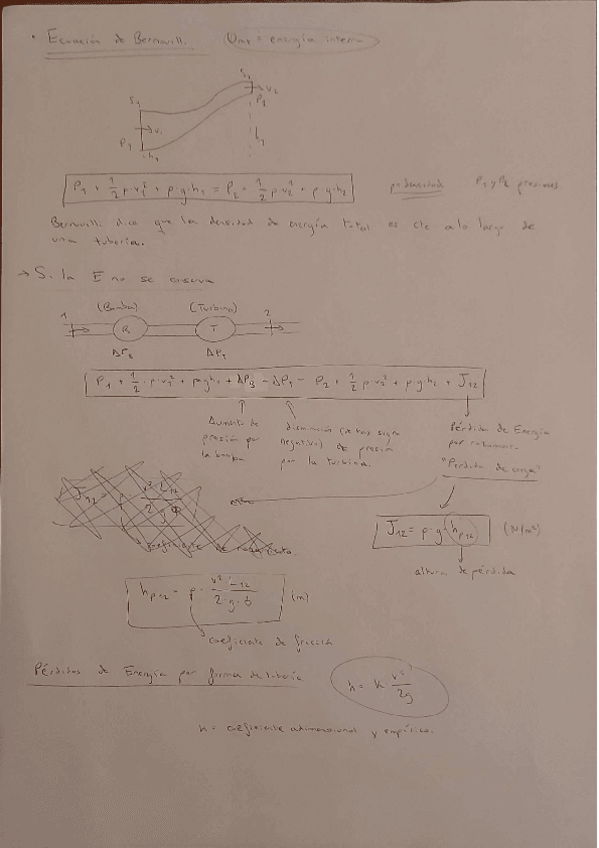 • Ecuación de Bernouilli. (Umt = energía interna)
S₂
v₂
P₂
S₁
v₁
P₁
h₁
h₂
P₁ + 1/2 ρ·v₁² + ρ·g·h₁ = P₂ + 1/2 ρ·v₂² + ρ·g·h₂ ρ=densidad P₁ y P₂ presiones
Bernouilli dice que la densidad de energía total es cte a lo largo de
una tubería.
→ Si la E no se conserva
(Bomba) (Turbina)
1 B T 2
ΔP_B ΔP_T
P₁ + 1/2·ρ·v₁² + ρ·g·h₁ + ΔP_B - ΔP_T = P₂ + 1/2 ρ·v₂² + ρ·g·h₂ + J₁₂
Aumento de
presión por
la bomba
disminución (de signo
negativo) de presión
por la turbina.
Pérdida de Energía
por rozamiento
"Perdida de carga"
J₁₂ = ρ·g·h_p₁₂ (N/m²)
altura de pérdida
coeficiente de rozamiento.
h_p₁₂ = f · v² L₁₂ / 2·g·Φ (m)
coeficiente de fricción
Pérdidas de Energía por forma de tubería
h = K · v² / 2g
K = coeficiente adimensional y empírico.